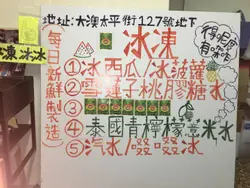 地址:大澳太平街127號地下
冰凍
每日新鮮製造
①冰西瓜/冰菠蘿
②雪蓮子桃膠糖水
③
④泰國青檸檬薏米水
⑤汽水/啜啜冰
凍冰水